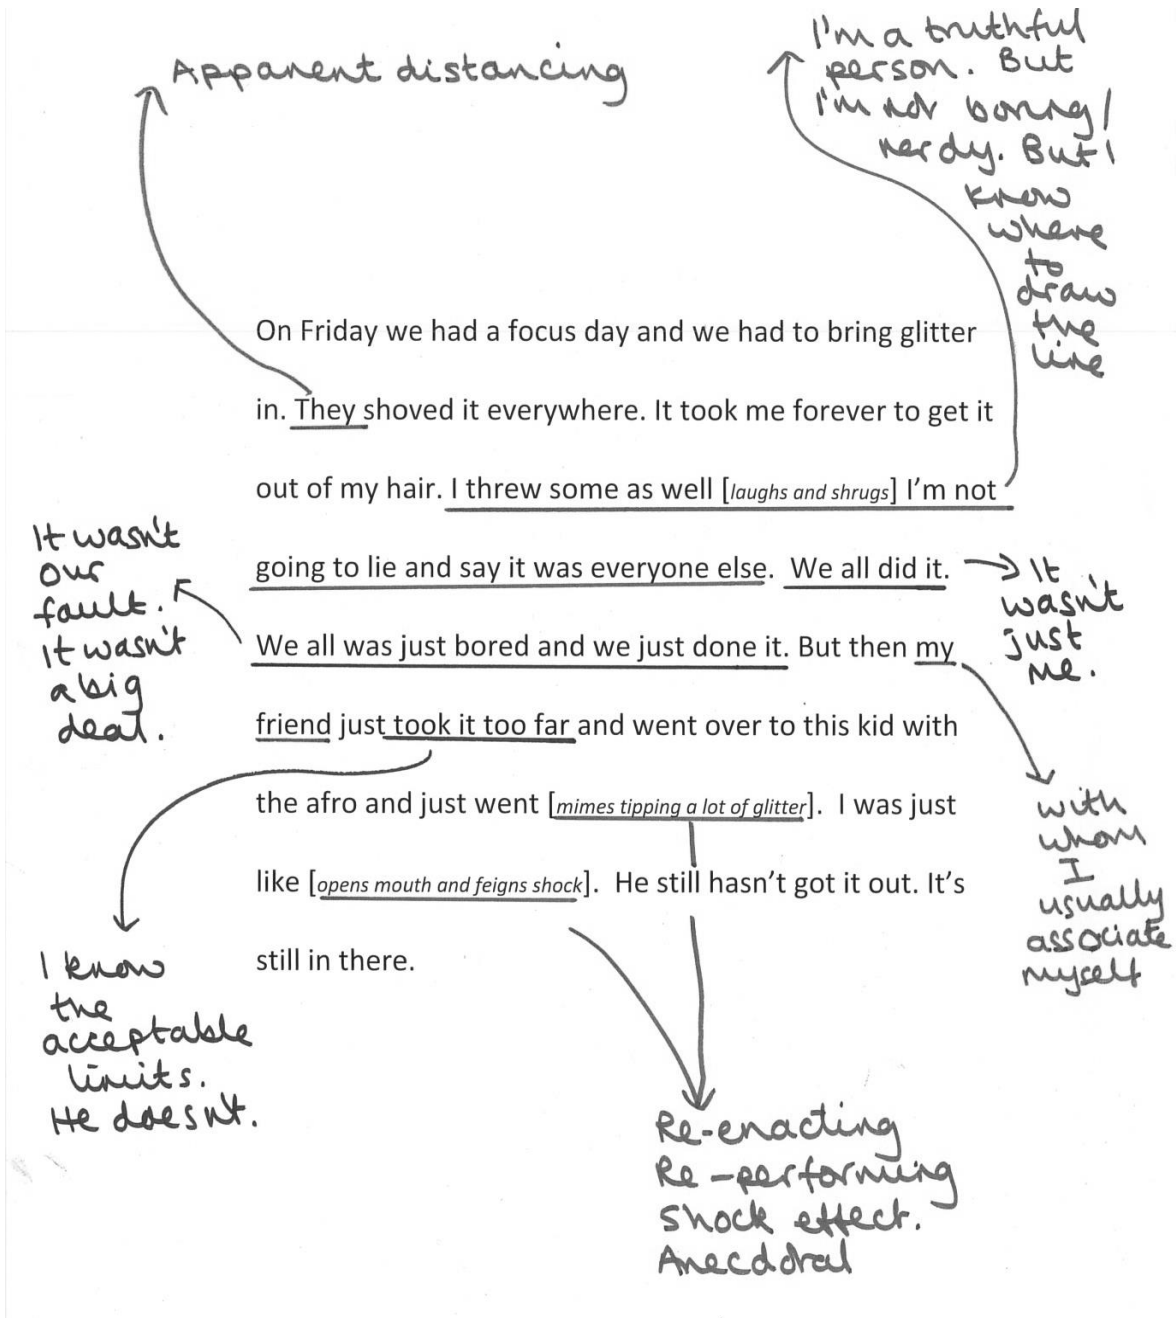 Apparent distancing
I'm a truthful
person. But
I'm not boring/
nerdy. But I
know
where
to
draw
the
line
On Friday we had a focus day and we had to bring glitter
in. They shoved it everywhere. It took me forever to get it
out of my hair. I threw some as well [laughs and shrugs] I'm not
going to lie and say it was everyone else. We all did it.
We all was just bored and we just done it. But then my
friend just took it too far and went over to this kid with
the afro and just went [mimes tipping a lot of glitter]. I was just
like [opens mouth and feigns shock]. He still hasn't got it out. It's
still in there.
It wasn't
our
fault.
It wasn't
a big
deal.
It
wasn't
just
me.
with
whom
I
usually
associate
myself
I know
the
acceptable
limits.
He doesn't.
Re-enacting
Re-performing
shock effect.
Anecdotal